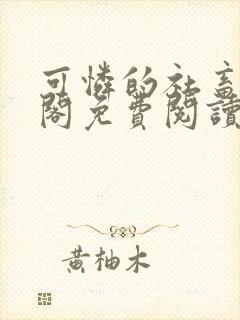 可憐的社畜
閣免費閱讀
黃柚木